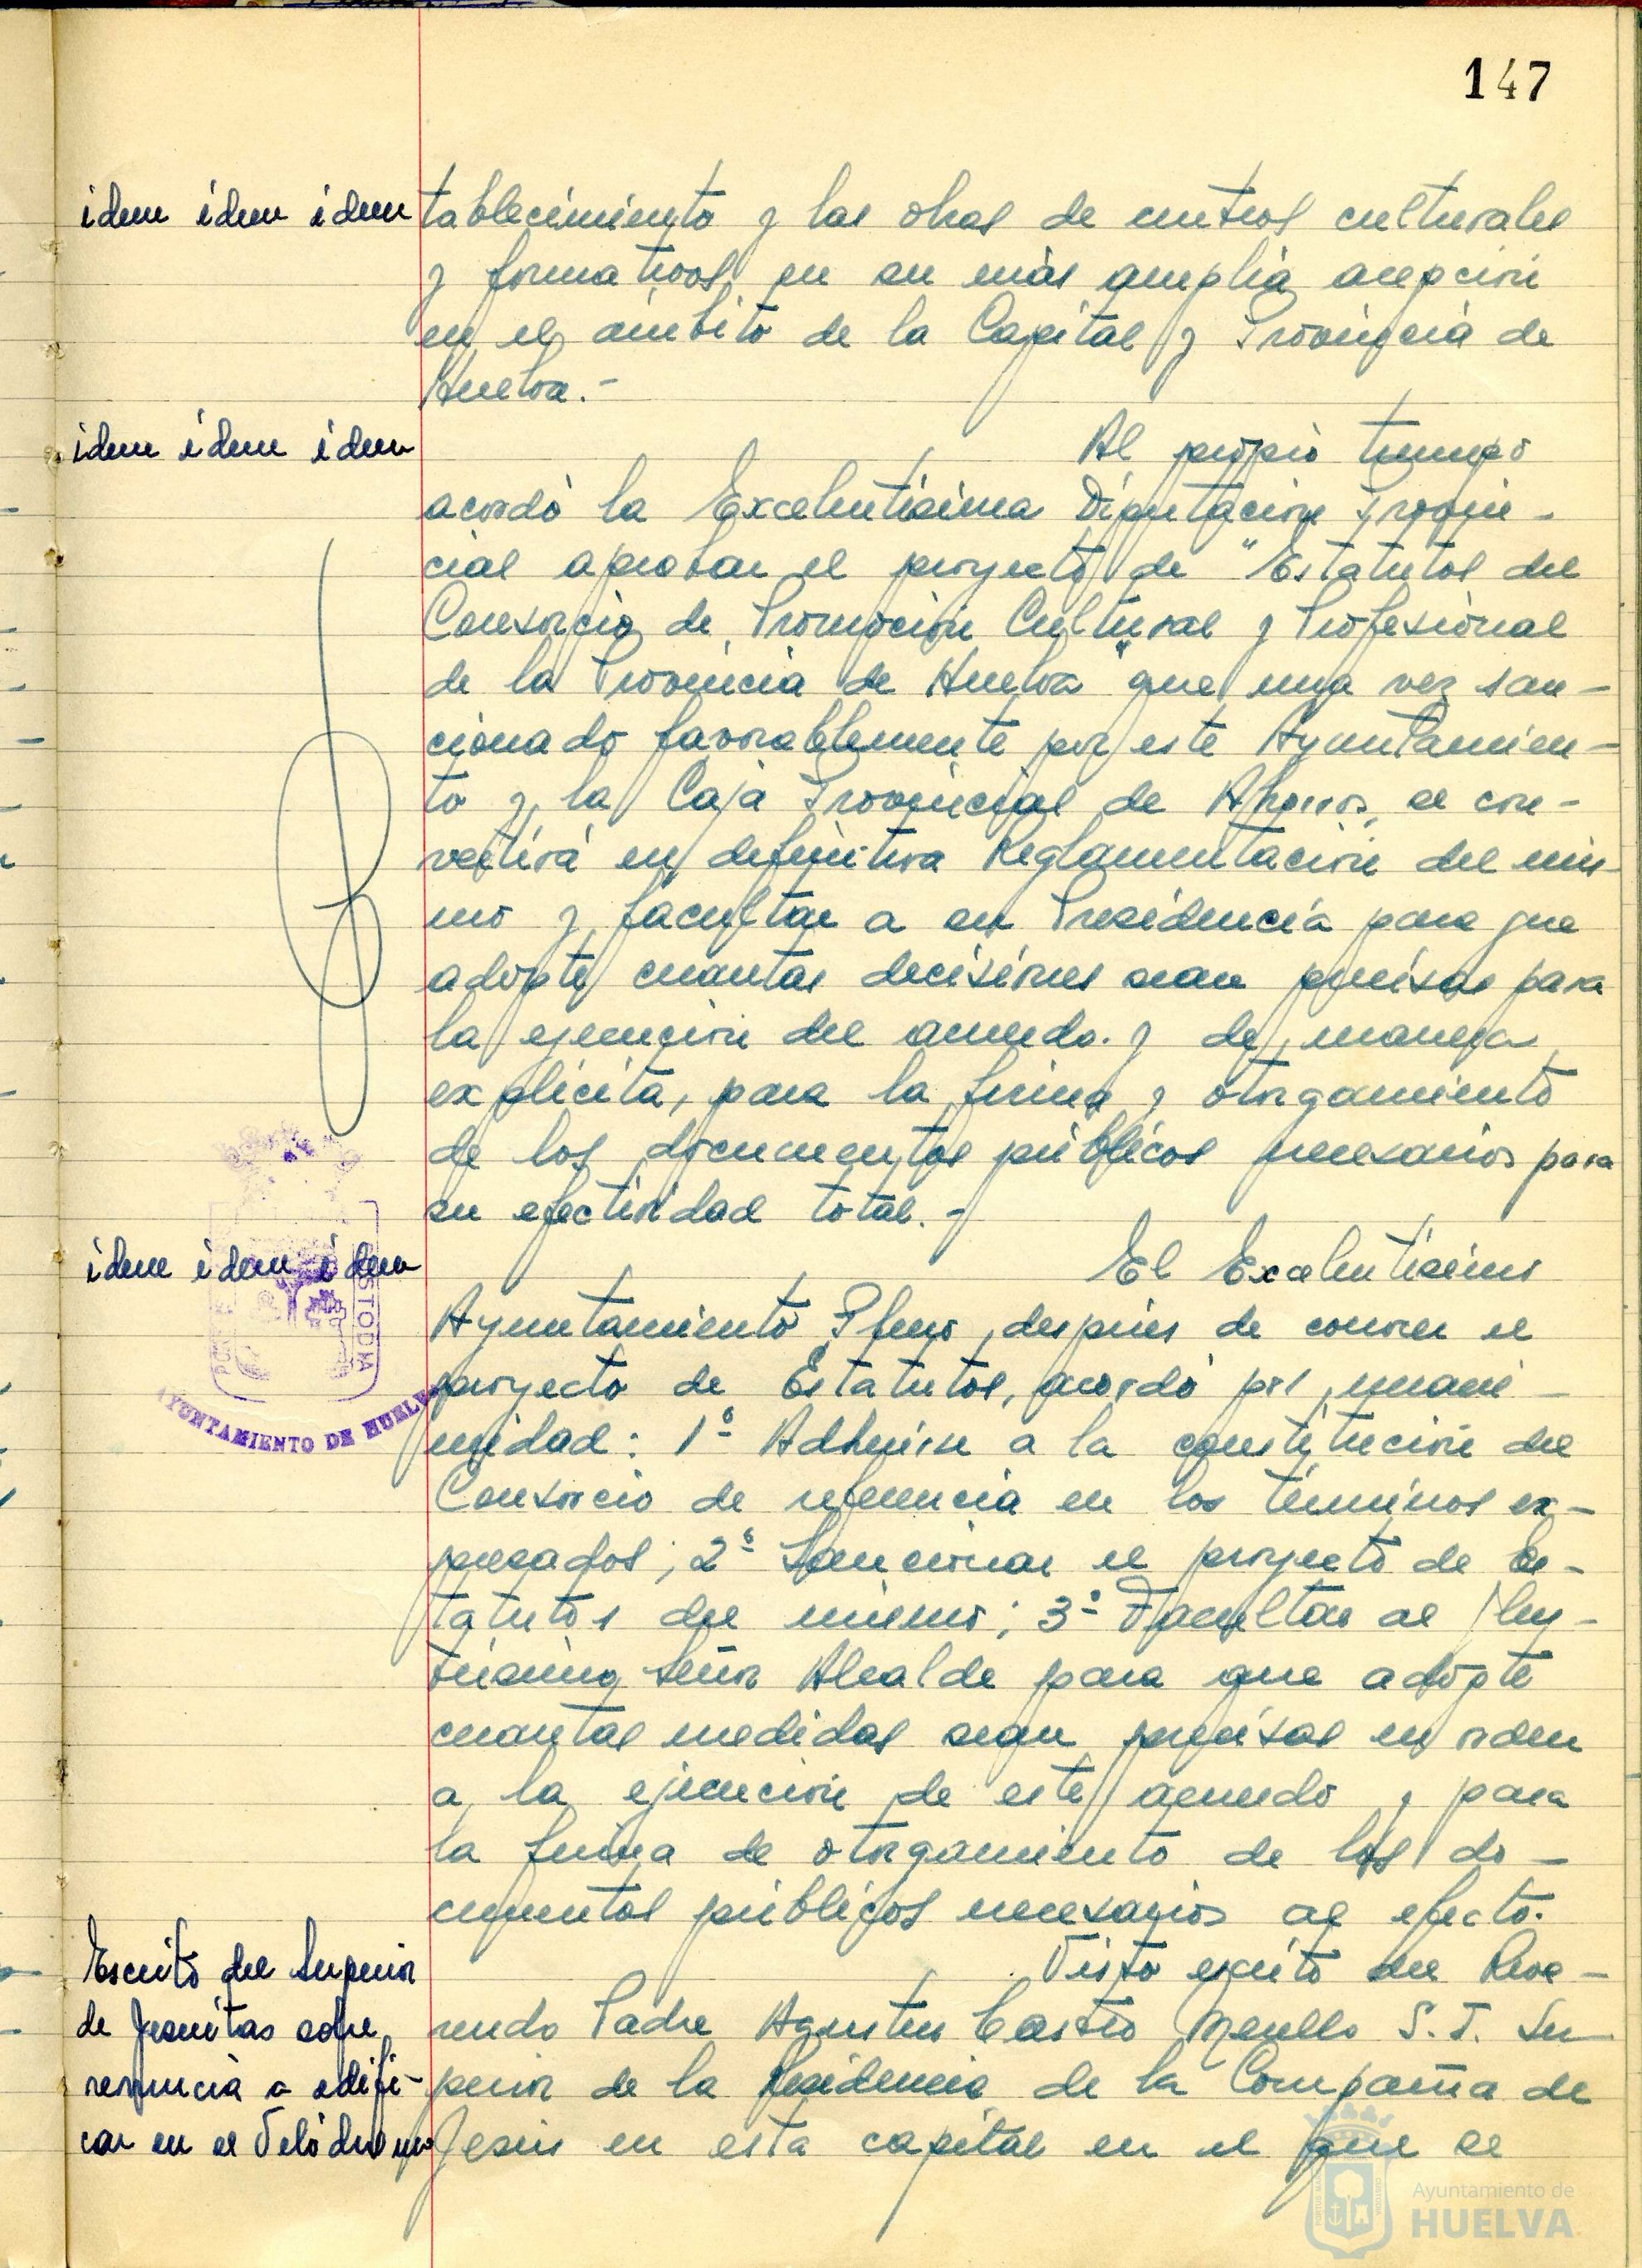 147
idem idem idem
tablecimiento y las obras de centros culturales
y formativos, en su más amplia acepción
en el ámbito de la Capital y Provincia de
Huelva.-
idem idem idem
Al propio tiempo
acordó la Excelentísima Diputación Provin-
cial aprobar el proyecto de "Estatutos del
Consorcio de Promoción Cultural y Profesional
de la Provincia de Huelva" que una vez san-
cionado favorablemente por este Ayuntamien-
to y la Caja Provincial de Ahorros, se con-
vertirá en definitiva Reglamentación del mis
mo y facultar a su Presidencia para que
adopte cuantas decisiones sean precisas para
la ejecución del acuerdo. y de manera
explícita, para la firma y otorgamiento
de los documentos públicos necesarios para
su efectividad total.-
idem idem idem
El Excelentísimo
Ayuntamiento Pleno, después de conocer el
proyecto de Estatutos, acordó por unani-
midad: 1º Adherirse a la constitución del
Consorcio de referencia en los términos ex-
presados; 2º Sancionar el proyecto de Es-
tatutos del mismo; 3º Facultar al Ilus-
trísimo Señor Alcalde para que adopte
cuantas medidas sean precisas en orden
a la ejecución de este acuerdo y para
la firma de otorgamiento de los do-
cumentos públicos necesarios al efecto.
Escrito del Superior
de Jesuitas sobre
renuncia a edifi-
car en el Velódromo
Visto escrito del Reve-
rendo Padre Agustín Castro Merello S.J. Su
perior de la Residencia de la Compañía de
Jesús en esta capital en el que se
CUSTODIA
AYUNTAMIENTO DE HUELVA
Ayuntamiento de
HUELVA